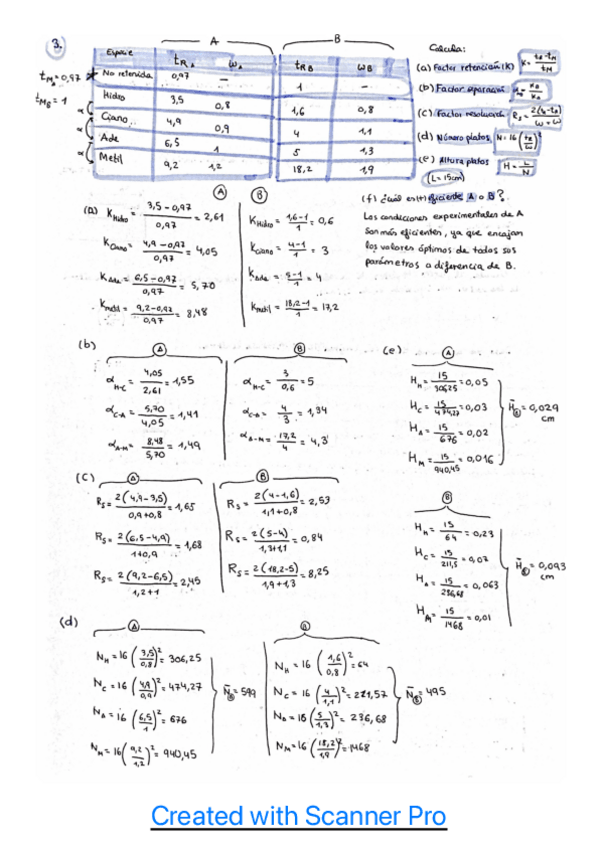 3.
A
B
Especie tRA ωA tRB ωB
tMA = 0,97 No retenida 0,97 — 1 —
tMB = 1 Hidro 3,5 0,8 1,6 0,8
α Ciano 4,9 0,9 4 1,1
α Ade 6,5 1 5 1,3
α Metil 9,2 1,2 18,2 1,9
Calcula:
(a) Factor retención (K) K = tR - tM / tM
(b) Factor separación α = KB / KA
(c) Factor resolución RS = 2(tR - tR) / ω + ω
(d) Número platos N = 16 (tR / ω)²
(e) Altura platos H = L / N
(L = 15cm)
(f) ¿Cuál es (+) eficiente A o B?
Las condiciones experimentales de A
son más eficientes, ya que encajan
los valores óptimos de todos sus
parámetros a diferencia de B.
(a)
A
KHidro = 3,5 - 0,97 / 0,97 = 2,61
KCiano = 4,9 - 0,97 / 0,97 = 4,05
KAde = 6,5 - 0,97 / 0,97 = 5,70
KMetil = 9,2 - 0,97 / 0,97 = 8,48
B
KHidro = 1,6 - 1 / 1 = 0,6
KCiano = 4 - 1 / 1 = 3
KAde = 5 - 1 / 1 = 4
KMetil = 18,2 - 1 / 1 = 17,2
(b)
A
αH-C = 4,05 / 2,61 = 1,55
αC-A = 5,70 / 4,05 = 1,41
αA-M = 8,48 / 5,70 = 1,49
B
αH-C = 3 / 0,6 = 5
αC-A = 4 / 3 = 1,34
αA-M = 17,2 / 4 = 4,3
(e)
A
HH = 15 / 306,25 = 0,05
HC = 15 / 474,27 = 0,03
HA = 15 / 676 = 0,02
HM = 15 / 940,45 = 0,016
H̄A = 0,029
cm
B
HH = 15 / 64 = 0,23
HC = 15 / 211,5 = 0,07
HA = 15 / 236,68 = 0,063
HM = 15 / 1468 = 0,01
H̄B = 0,093
cm
(c)
A
RS = 2(4,9 - 3,5) / 0,9 + 0,8 = 1,65
RS = 2(6,5 - 4,9) / 1 + 0,9 = 1,68
RS = 2(9,2 - 6,5) / 1,2 + 1 = 2,45
B
RS = 2(4 - 1,6) / 1,1 + 0,8 = 2,53
RS = 2(5 - 4) / 1,3 + 1,1 = 0,84
RS = 2(18,2 - 5) / 1,9 + 1,3 = 8,25
(d)
A
NH = 16 (3,5 / 0,8)² = 306,25
NC = 16 (4,9 / 0,9)² = 474,27
NA = 16 (6,5 / 1)² = 676
NM = 16 (9,2 / 1,2)² = 940,45
N̄A = 599
B
NH = 16 (1,6 / 0,8)² = 64
NC = 16 (4 / 1,1)² = 211,57
NA = 16 (5 / 1,3)² = 236,68
NM = 16 (18,2 / 1,9)² = 1468
N̄B = 495
Created with Scanner Pro